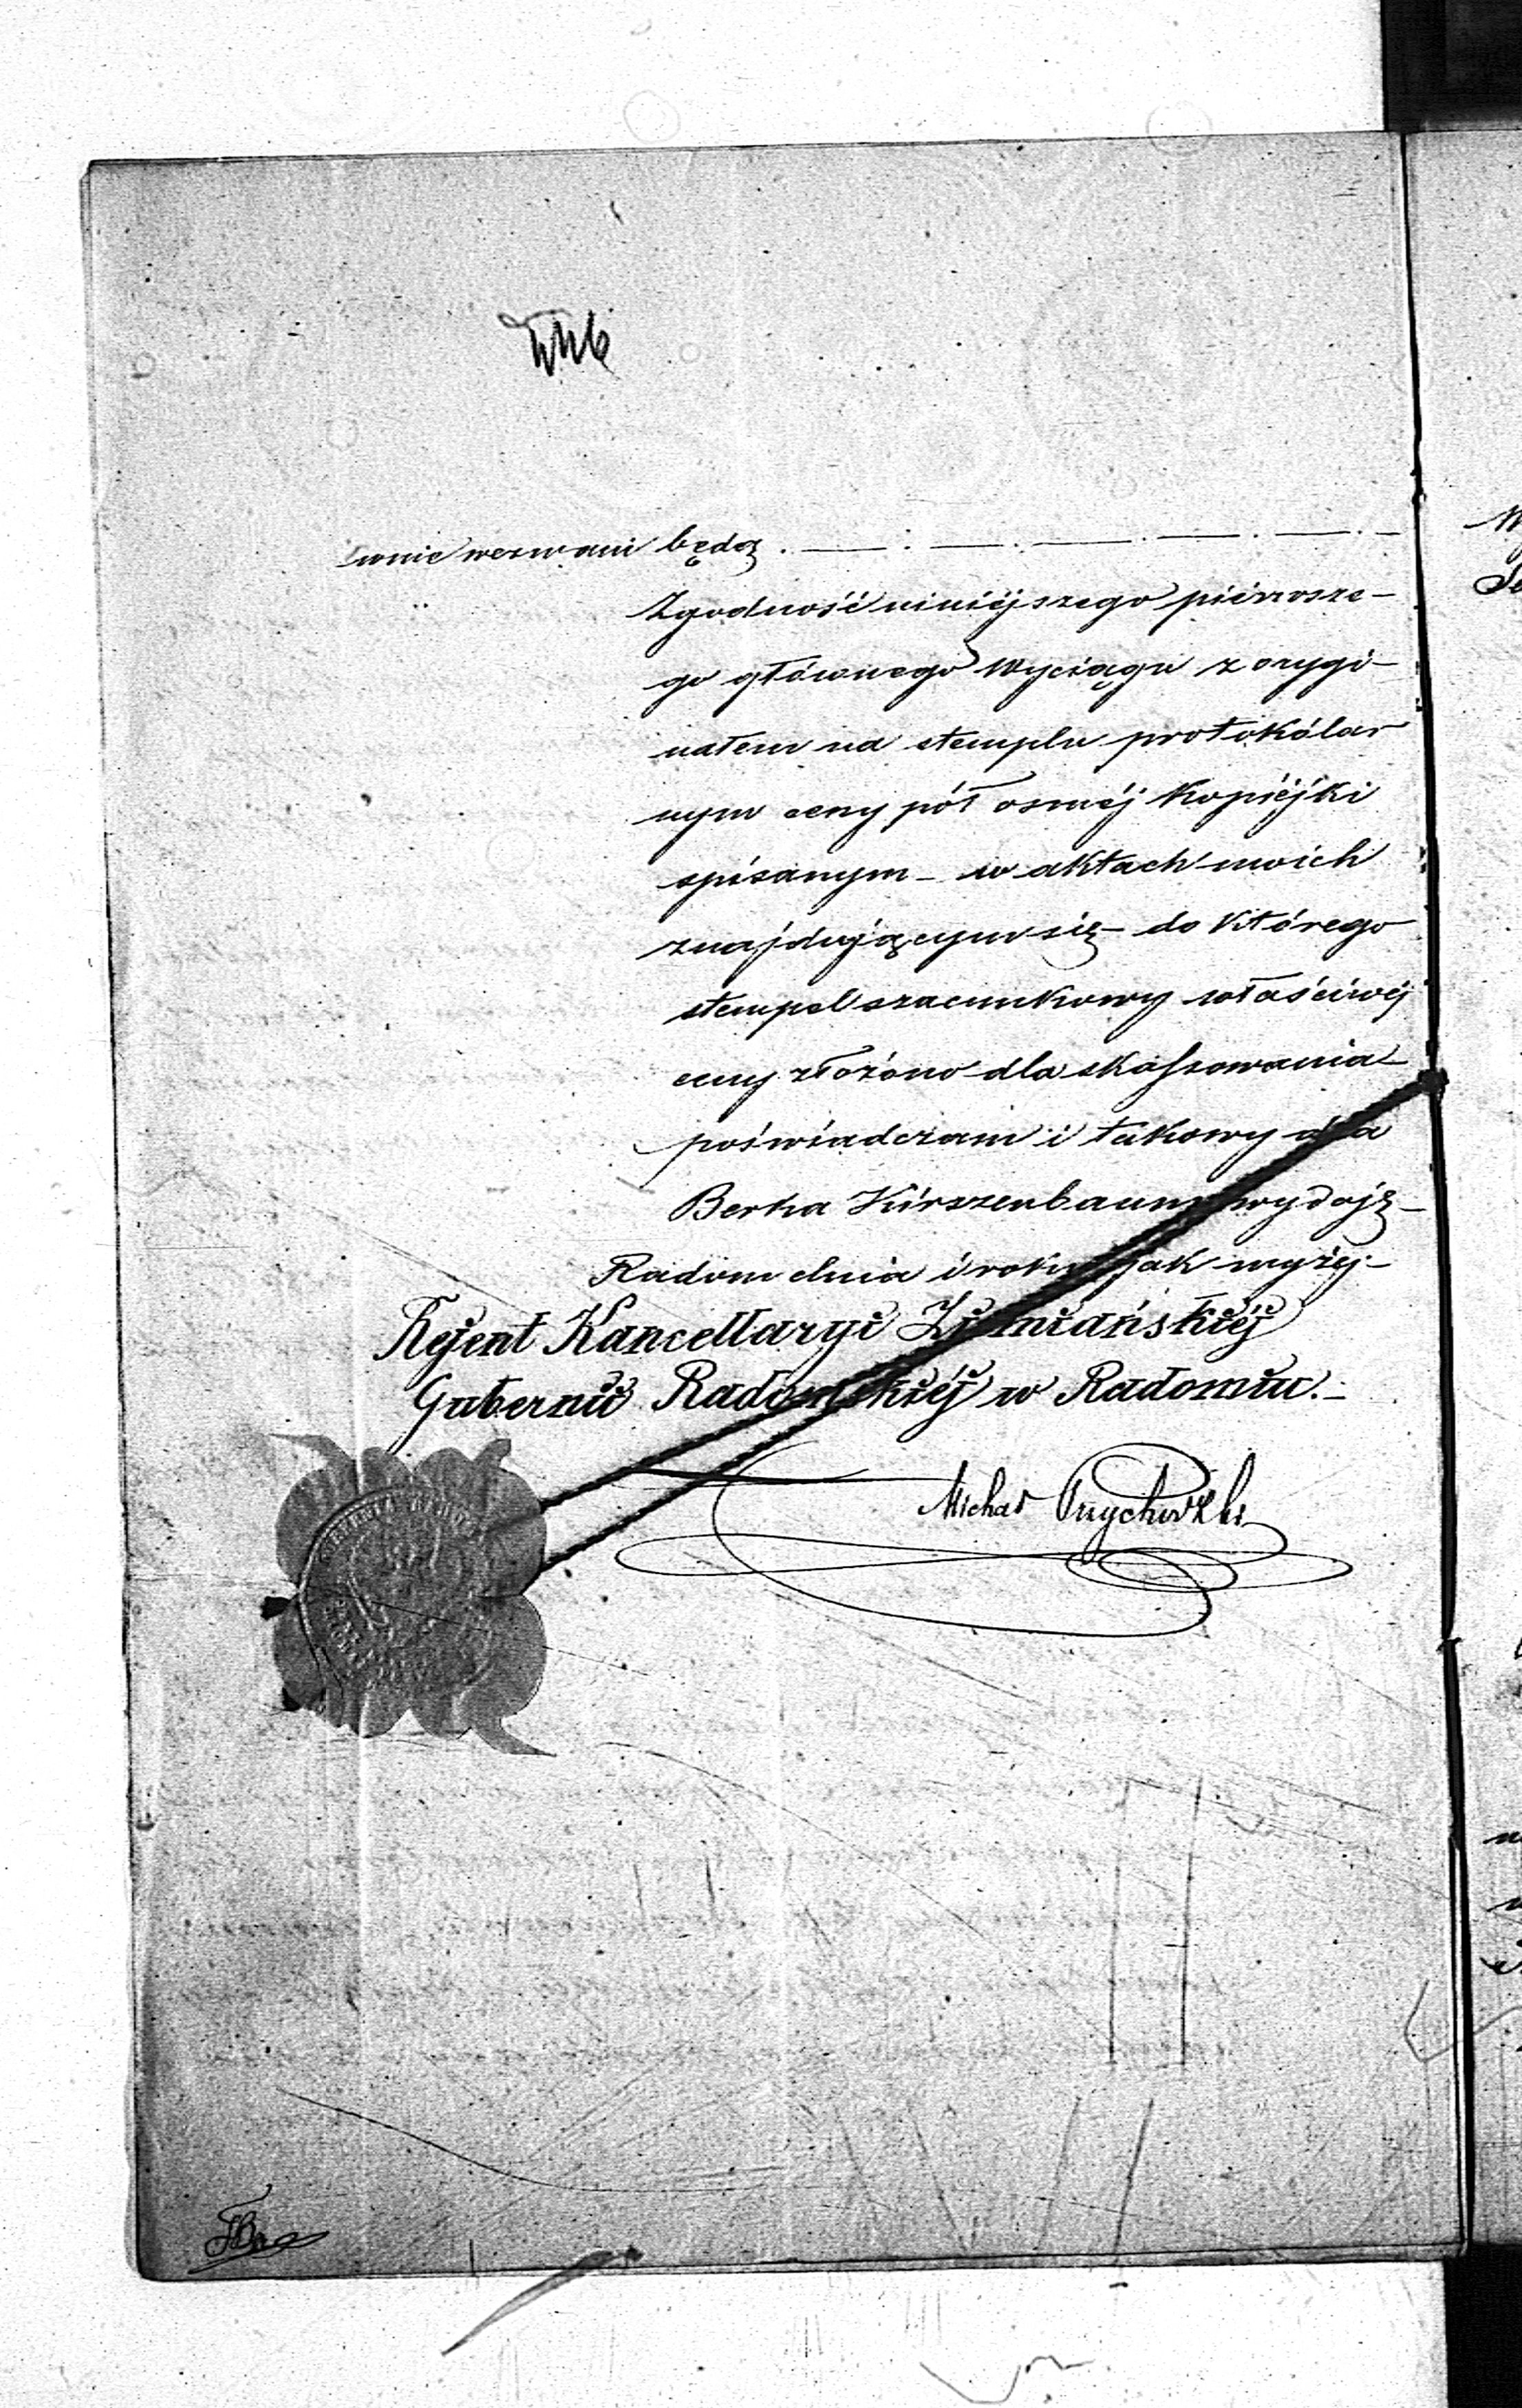 wnie wezwani będą.
Zgodność niniéjszego piérwsze-
go głównego Wyciągu z orygi-
nałem na stemplu protokólar
nym ceny pół ósméj kopiéjki
spisanym - w aktach moich
znajdującym się - do którego
stempel szacunkowy właściwéj
ceny złożono dla skassowania
poświadczam i takowy dla
Berka Kirszenbaum wydaję -
Radom dnia i roku jak wyżéj -
Rejent Kancellaryi Ziemiańskiéj
Gubernii Radomskiéj w Radomiu. -
Michał